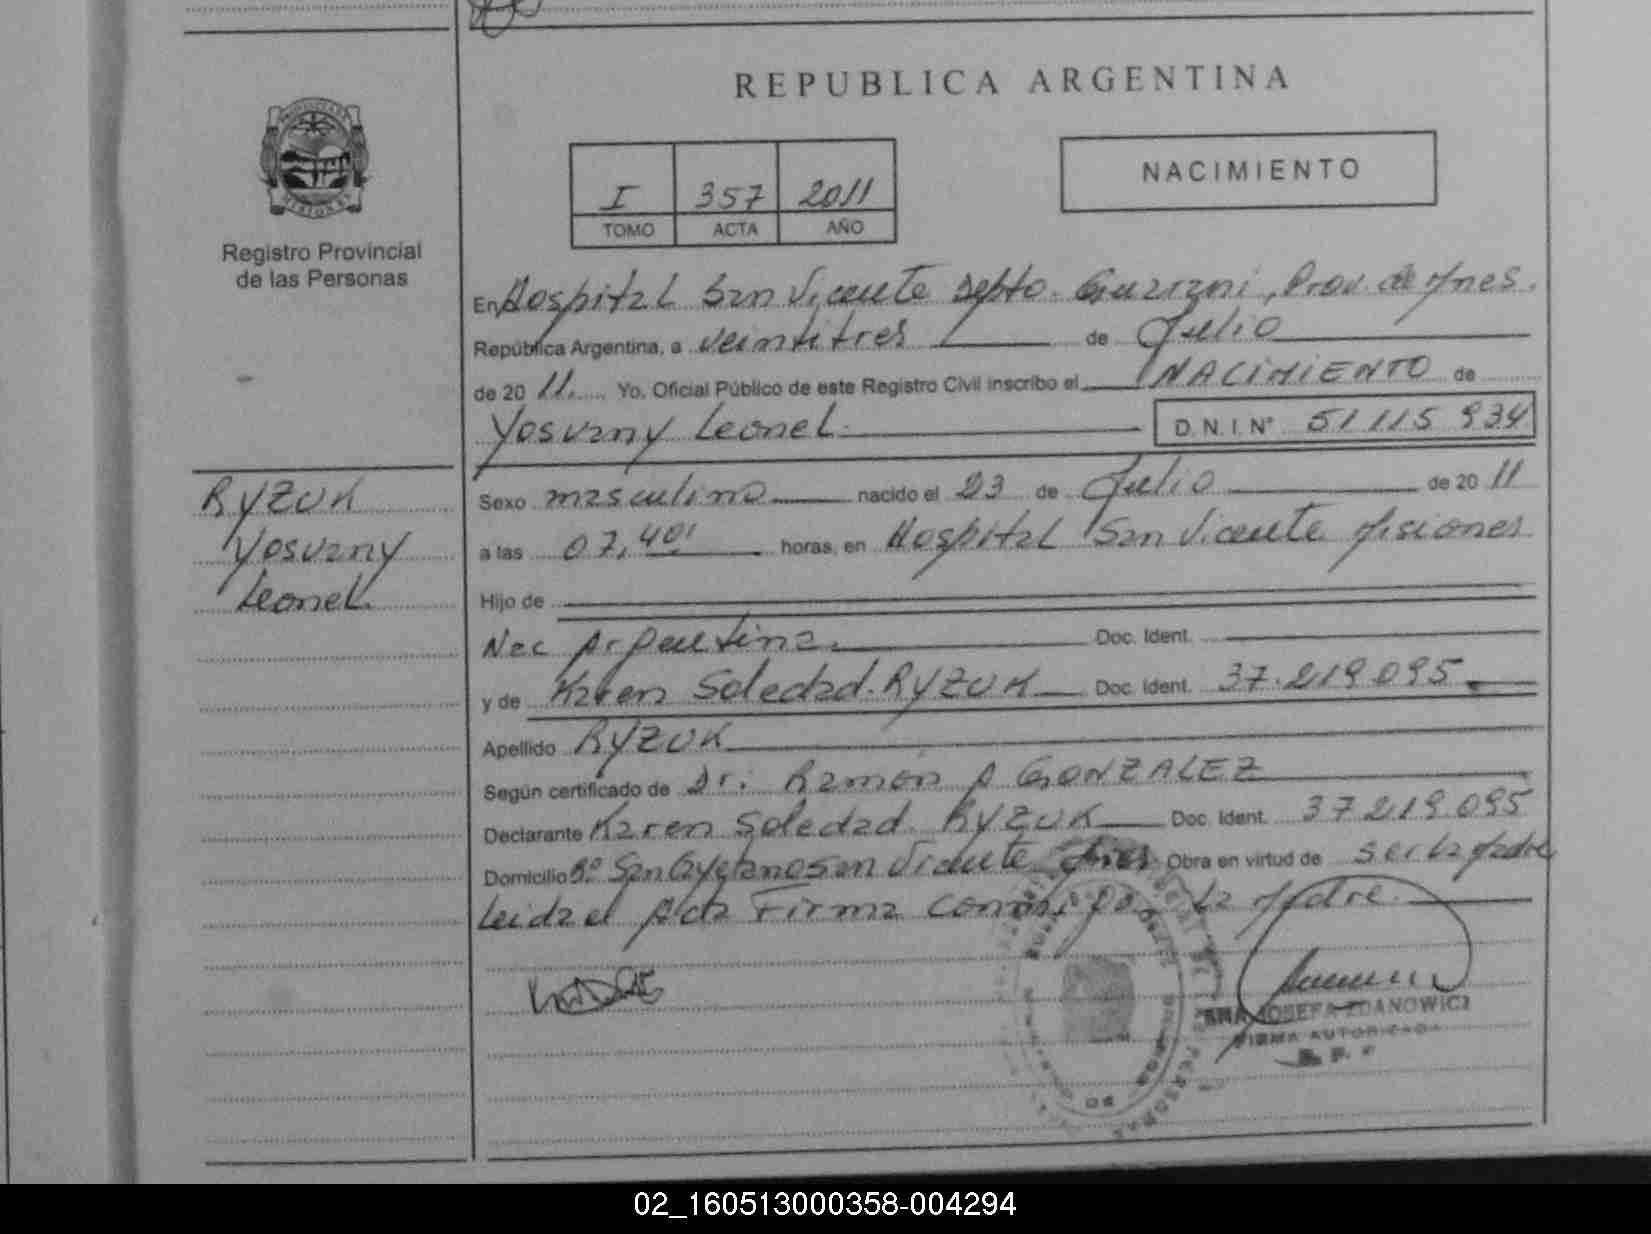 REPUBLICA ARGENTINA
I 357 2011
TOMO ACTA AÑO
NACIMIENTO
Registro Provincial
de las Personas
En Hospital San Vicente Depto. Guarani, Prov. de Mnes.
República Argentina, a veintitres de Julio
de 20 11. Yo, Oficial Público de este Registro Civil inscribo el NACIMIENTO de
Yosvany Leonel D.N.I.Nº 51 115 934
RYZUK
Yosvany
Leonel
Sexo masculino nacido el 23 de Julio de 20 11
a las 07,40' horas, en Hospital San Vicente Misiones
Hijo de
Nac Argentina. Doc. Ident.
y de Karen Soledad RYZUK Doc. Ident. 37.219.095.
Apellido RYZUK
Según certificado de Dr. Ramón A GONZALEZ
Declarante Karen Soledad RYZUK Doc. Ident. 37 219 095
Domicilio Bº San Cayetano San Vicente Mnes. Obra en virtud de ser la Madre
Leida el Acta Firma conmigo La Madre.
ANA JOSEFA ZDANOWICZ
FIRMA AUTORIZADA
02_160513000358-004294